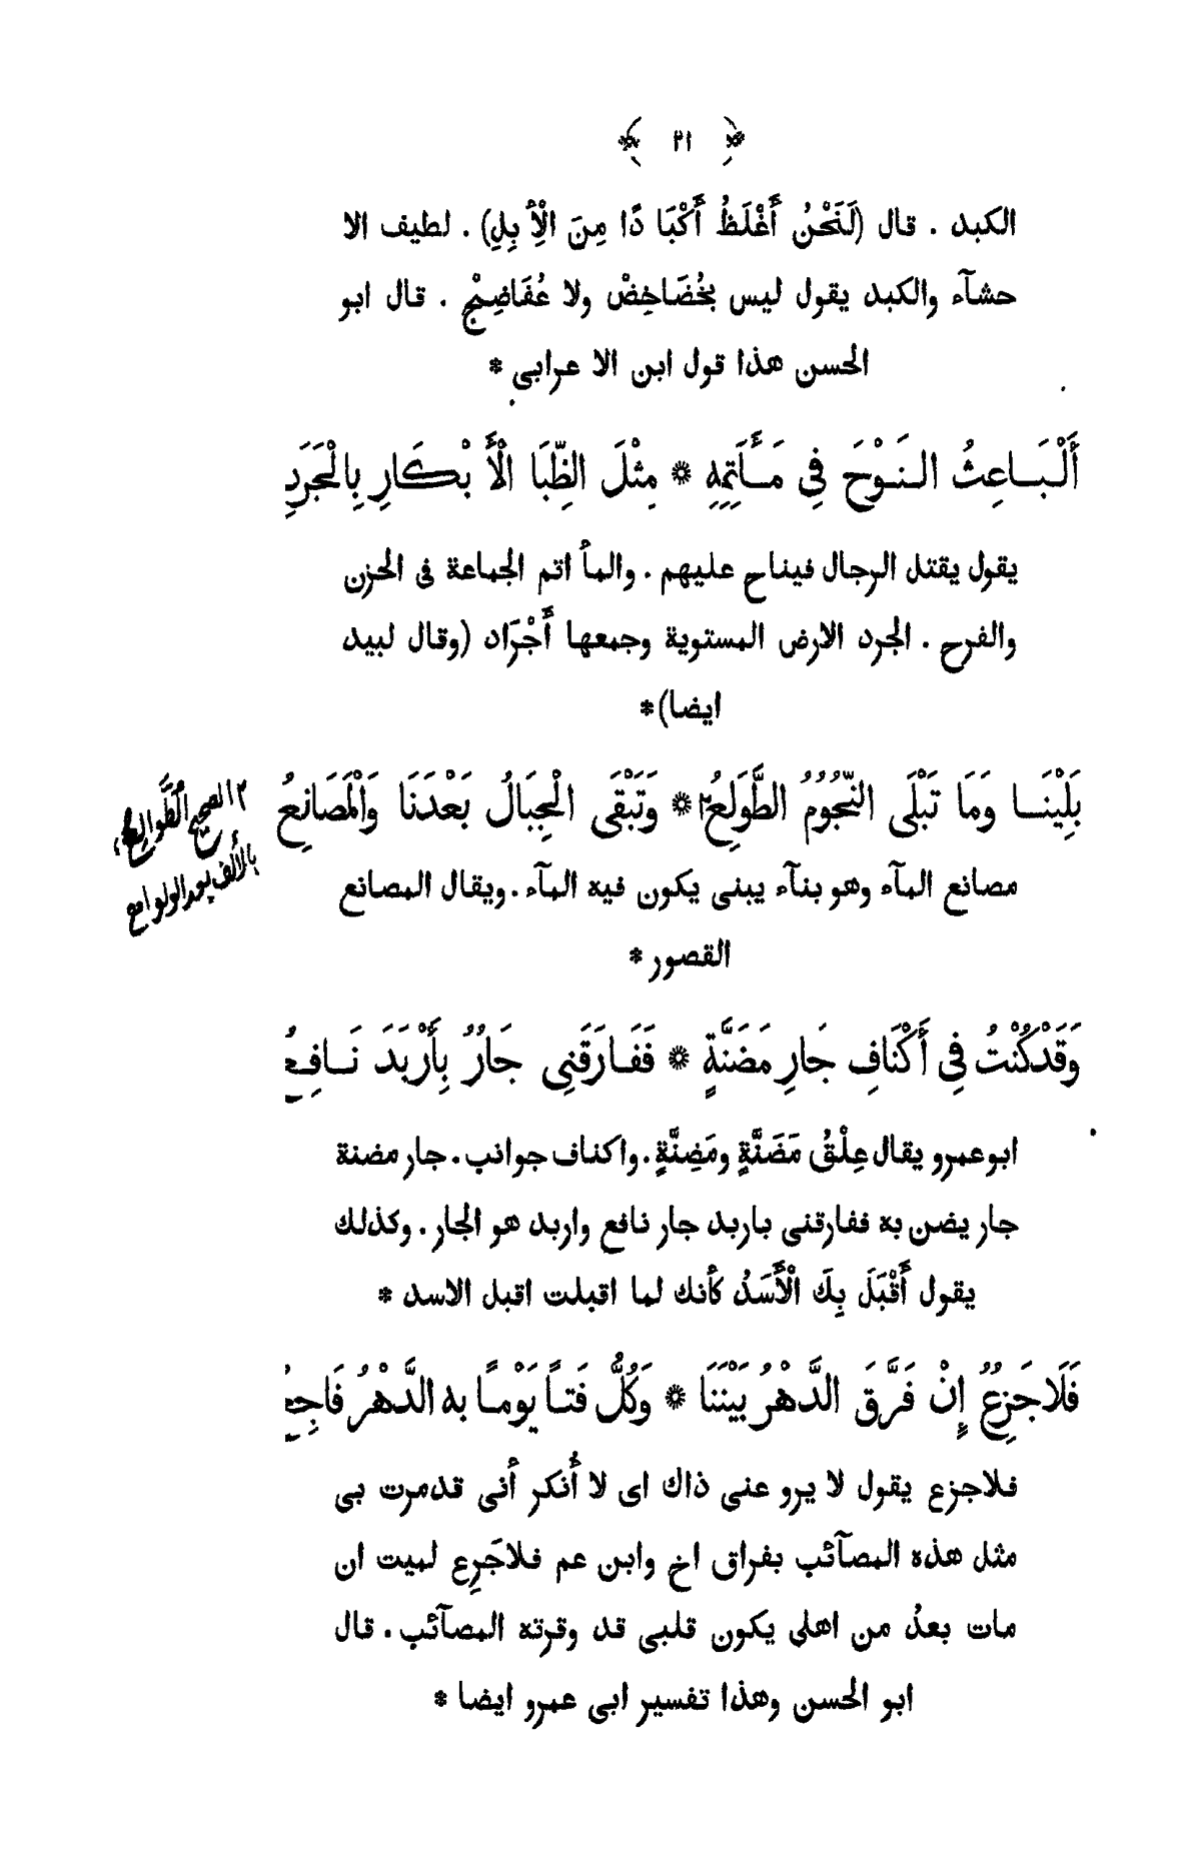 ﴿ ٢١ ﴾
الكبد . قال (لَنَحْنُ أَغْلَظُ أَكْبَا دًا مِنَ الْأِ بِلِ) . لطيف الا
حشآء والكبد يقول ليس بخُضَاخِضْ ولا عُفَاضِجْ . قال ابو
الحسن هذا قول ابن الا عرابى *
أَلْبَاعِثُ النَوْحَ فِي مَأَتِمِهِ * مِثْلَ الظِّبَا الْأَ بْكَارِ بِالْجَرَدِ
يقول يقتل الرجال فيناح عليهم . والمأ اتم الجماعة فى الحزن
والفرح . الجرد الارض المستوية وجمعها أَجْرَاد (وقال لبيد
ايضا) *
بَلِيْنَا وَمَا تَبْلَى النّجُومُ الطَّوَلِعُ٢ * وَتَبْقَى الْجِبَالُ بَعْدَنَا وَالْمَصَانِعُ
٢ الصحيح الطَّوالِعُ
بالألف بعد الواو
مصانع المآء وهو بنآء يبنى يكون فيه المآء . ويقال المصانع
القصور *
وَقَدْكُنْتُ فِي أَكْنَافِ جَارِ مَضَنَّةٍ * فَفَارَقَنِى جَارُ بِأَرْبَدَ نَافِعُ
ابوعمرو يقال عِلْقُ مَضَنَّةٍ ومَضِنَّةٍ . واكناف جوانب . جار مضنة
جار يضن به ففارقنى باربد جار نافع واربد هو الجار . وكذلك
يقول أَقْبَلَ بِكَ الْأَسَدُ كأنك لما اقبلت اقبل الاسد *
فَلَا جَزِعُ إِنْ فَرَّقَ الدَّهْرُ بَيْنَنَا * وَكُلُّ فَتًا يَوْمًا به الدَّهْرُ فَاجِعُ
فلاجزع يقول لا يرو عنى ذاك اى لا أُنكر أنى قدمرت بى
مثل هذه المصآئب بفراق اخ وابن عم فلاجَرِع لميت ان
مات بعدُ من اهلى يكون قلبى قد وقرته المصآئب . قال
ابو الحسن وهذا تفسير ابى عمرو ايضا *